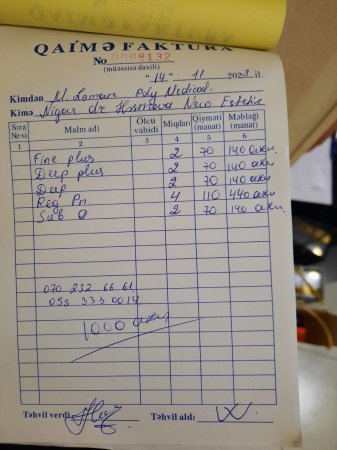 QAİMƏ FAKTURA
No 0008132
(müəssisə daxili)
"14" 11 2023 il.
Kimdən M. Laman Poly Medical.
Kimə Nigar dr New Estetic
Sıra №-si Malın adı Ölçü vahidi Miqdarı Qiyməti (manat) Məbləği (manat)
1 2 3 4 5 6
Fine plus 2 70 140 azn.
Deep plus 2 70 140 azn.
Deep 2 70 140 azn.
Reg Pn 4 110 440 azn.
Sub Q 2 70 140 azn.
070 232 66 61
055 333 00 14
1000 azn
Təhvil verdi Təhvil aldı: